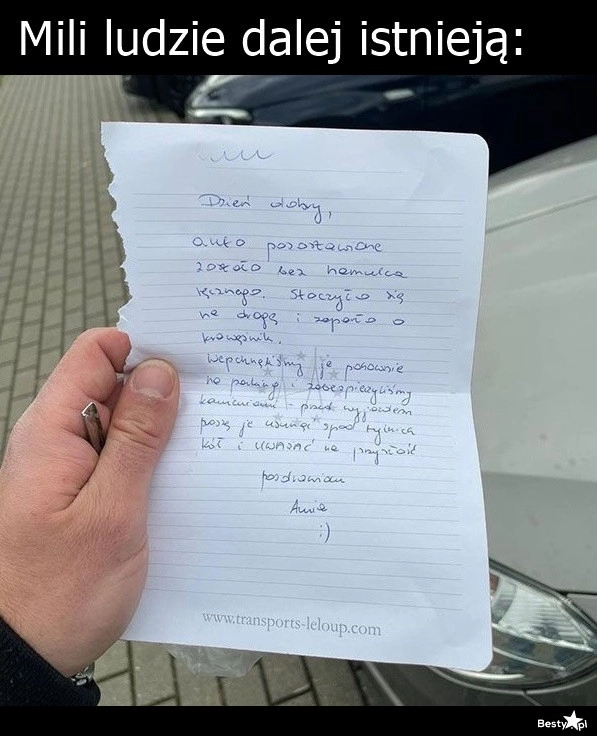 Mili ludzie dalej istnieją:
Dzień dobry,
auto pozostawione
zostało bez hamulca
ręcznego. Stoczyło się
na drogę i zaparło o
krawężnik.
Wepchnęliśmy je ponownie
na parking i zabezpieczyliśmy
kamieniami przed wyjazdem
proszę je usunąć spod tylnich
kół i UWAŻAĆ na przyszłość
pozdrawiam
Ania
:)
www.transports-leloup.com
Besty.pl